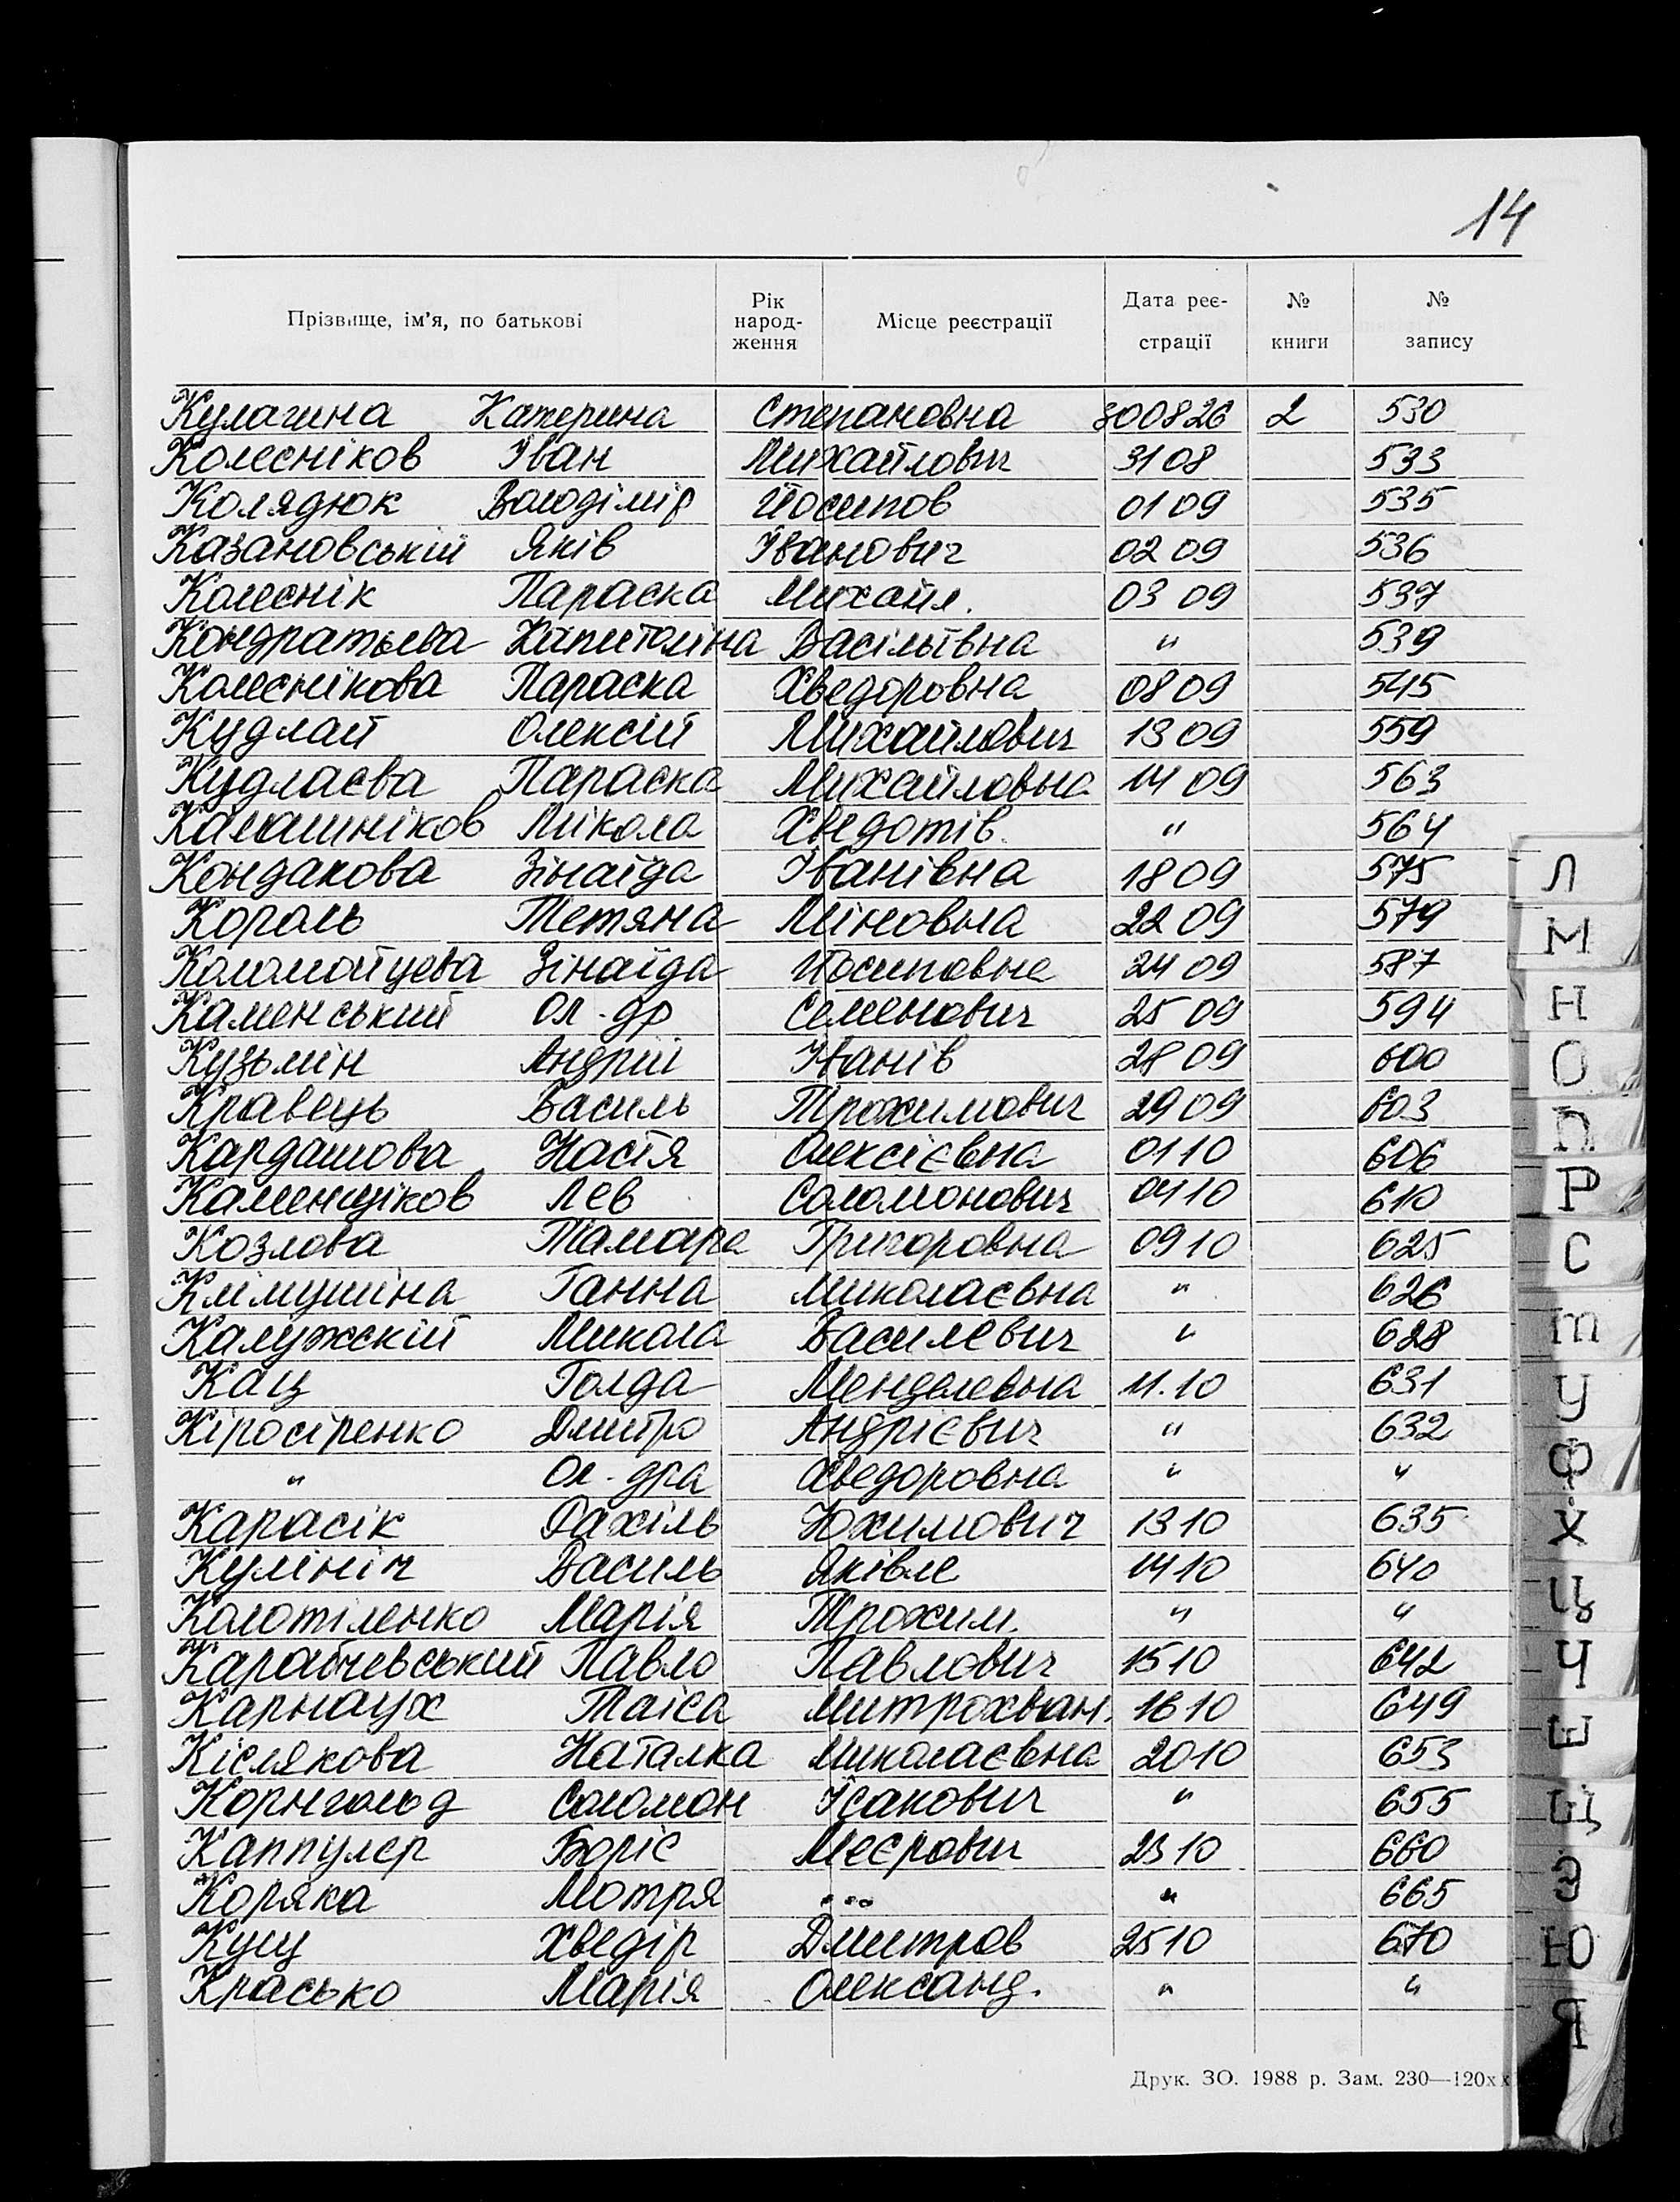 14
Прізвище, ім'я, по батькові | Рік народ-ження | Місце реєстрації | Дата реє-страції | № книги | № запису
Кулагина Катерина Степановна 300826 2 530
Колесніков Іван Михайлович 3108 533
Колядюк Володімір Йосипов 0109 535
Казановській Яків Іванович 0209 536
Колеснік Параска Михайл. 03 09 537
Кондратьєва Капитоліна Васільївна " 539
Колеснікова Параска Хведоровна 0809 545
Кудлай Олексій Михайлович 1309 559
Кудлаєва Параска Михайловна 1409 563
Калашніков Мікола Хведотів. " 564
Кондакова Зінаїда Іванівна 1809 575
Король Тетяна Міновна 2209 579
Коломойцева Зінаїда Йосиповна 2409 587
Каменський Ол-др Семенович 2509 594
Кузьмін Андрій Іванів 2809 600
Кравець Василь Трохимович 2909 603
Кардашова Настя Олексієвна 0110 606
Каменщіков Лев Соломонович 0410 610
Козлова Тамара Григоровна 0910 625
Клімушіна Ганна Миколаєвна " 626
Калужскій Микола Василевич " 628
Кац Голда Менделевна 11.10 631
Кіросіренко Дмитро Андрієвич " 632
" Ол-дра Хведоровна " "
Карасік Рахіль Юхимович 1310 635
Кулініч Василь Яківле 1410 640
Колотіленко Марія Трохим. " "
Карабчевський Павло Павлович 1510 642
Карнаух Таїса Митрохван. 1610 649
Кіслякова Наталка Миколаєвна 2010 653
Корнгольд Соломон Ісакович " 655
Каппулєр Боріс Меєрович 2310 660
Коряка Мотря ... " 665
Кущ Хведір Дмитров 2510 670
Красько Марія Олександ. " "
Друк. ЗО. 1988 р. Зам. 230—120хх
Л
М
Н
О
П
Р
С
т
У
Ф
Х
Ц
Ч
Ш
Щ
Э
Ю
Я